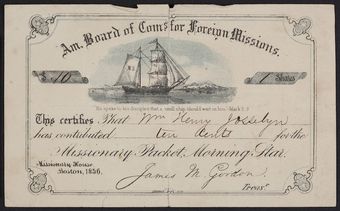 Am. Board of Coms for Foreign Missions.
$ .10
1 Shares
"He spake to his disciples that a small ship should wait on him." Mark 3.9
This certifies That Wm Henry Josselyn
has contributed ten cents for the
Missionary Packet, Morning Star.
Missionary House
Boston, 1856.
James M. Gordon,
Treasr.